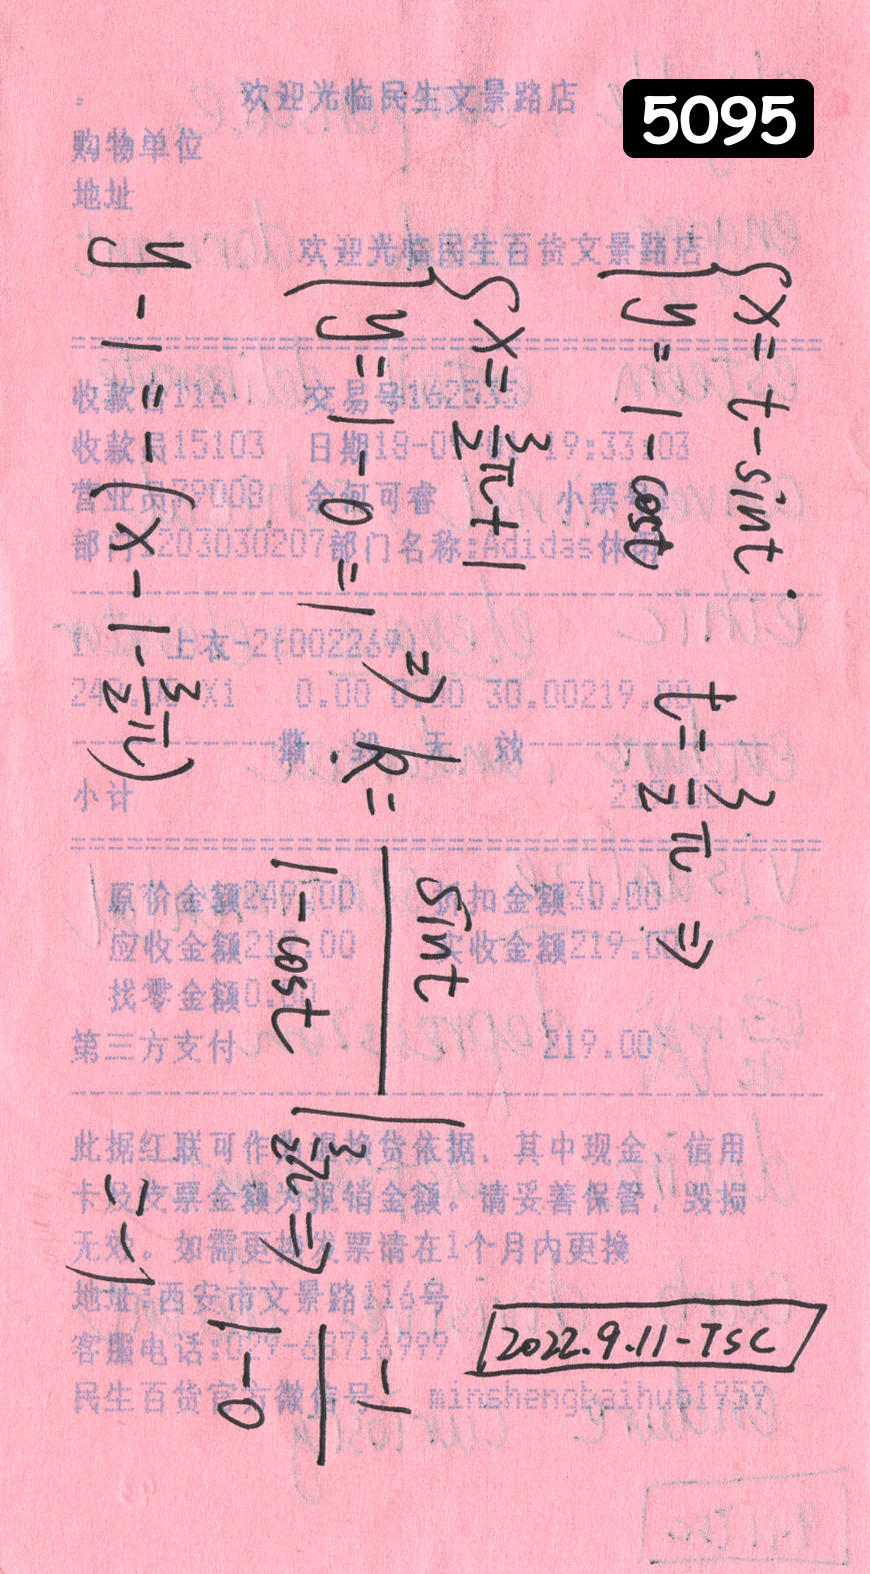 5095
欢迎光临民生文景路店
购物单位
地址
欢迎光临民生百货文景路店
收款台116 交易号162535
收款员15103 日期18-09 19:33:03
营业员79008 余何可睿 小票号
部门:203030207部门名称:Adidas休闲
1 上衣-2(002269)
249.00 X1 0.00 0.00 30.00219.00
撕 毁 无 效
小计 219.00
原价金额249.00 折扣金额30.00
应收金额219.00 实收金额219.00
找零金额0.00
第三方支付 219.00
此据红联可作为退换货依据，其中现金、信用
卡及支票金额为报销金额，请妥善保管，毁损
无效。如需更换发票请在1个月内更换
地址:西安市文景路116号
客服电话:029-65716999
民生百货官方微信号: minshengbaihuo1959
{x = t - sint
y = 1 - cost
t = 3/2 π ⇒
{x = 3/2 π + 1
y = 1 - 0 = 1
⇒ k = sint / (1 - cost) | 3/2 π ⇒ -1 / (1 - 0)
= -1
y - 1 = -(x - 1 - 3/2 π)
2022.9.11-TSC